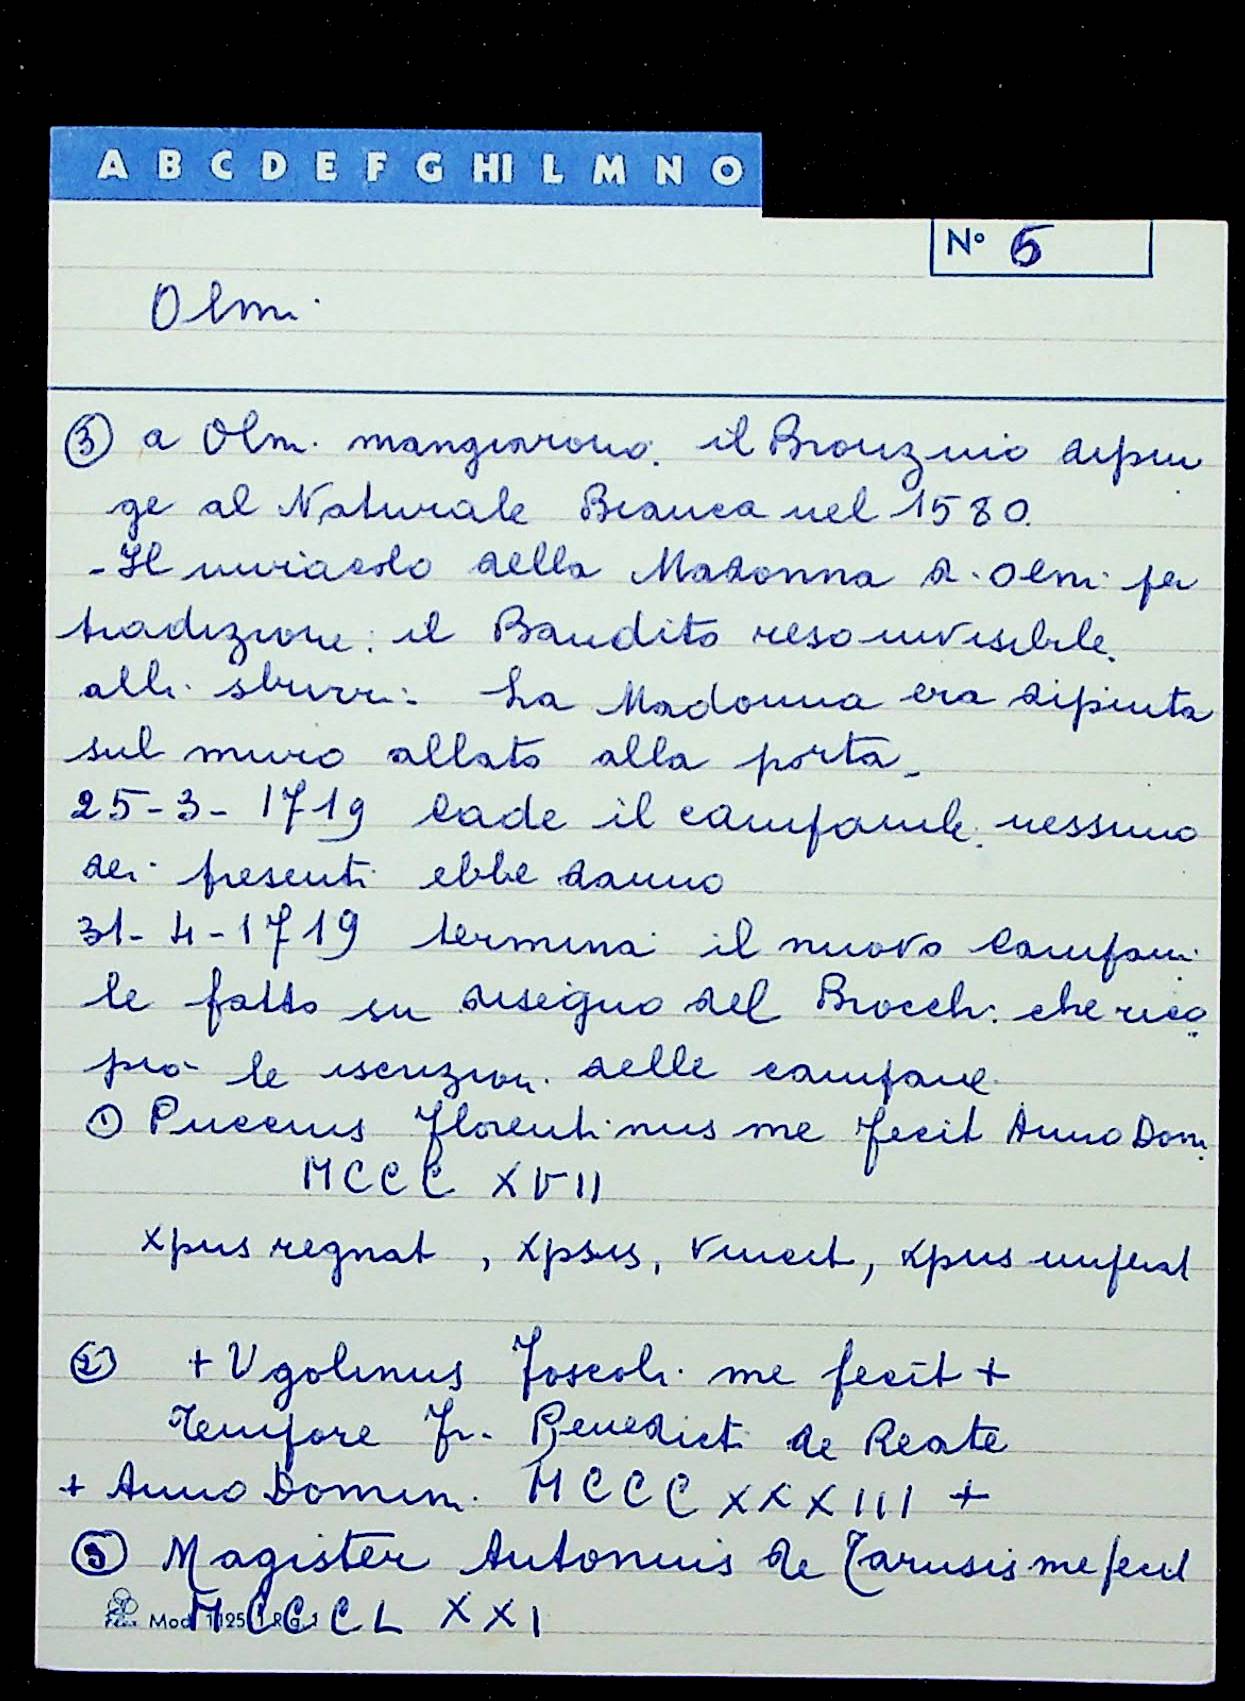 A B C D E F G HI L M N O
N° 6
Olmi
③ a Olmi mangiarono. il Bronzino dipin
ge al Naturale Bianca nel 1580.
- Il miracolo della Madonna di Olmi per
tradizione: il Bandito reso invisibile
alli sbirri. La Madonna era dipinta
sul muro allato alla porta.
25-3-1719 Cade il campanile. nessuno
dei presenti ebbe danno
31-4-1719 termina il nuovo Campani
le fatto su disegno del Brocchi che rico
piò le iscrizioni delle campane
① Puccius Florentinus me fecit Anno Dom.
MCCC XVII
xpus regnat, xpsus, vincit, xpus imperat
② + Ugolinus Foscoli me fecit +
Tempore Fr. Benedicti de Reate
+ Anno Domini MCCC XXXIII +
③ Magister Antonius de Tarusis me fecit
MCCCL XXI
Mod. 1125